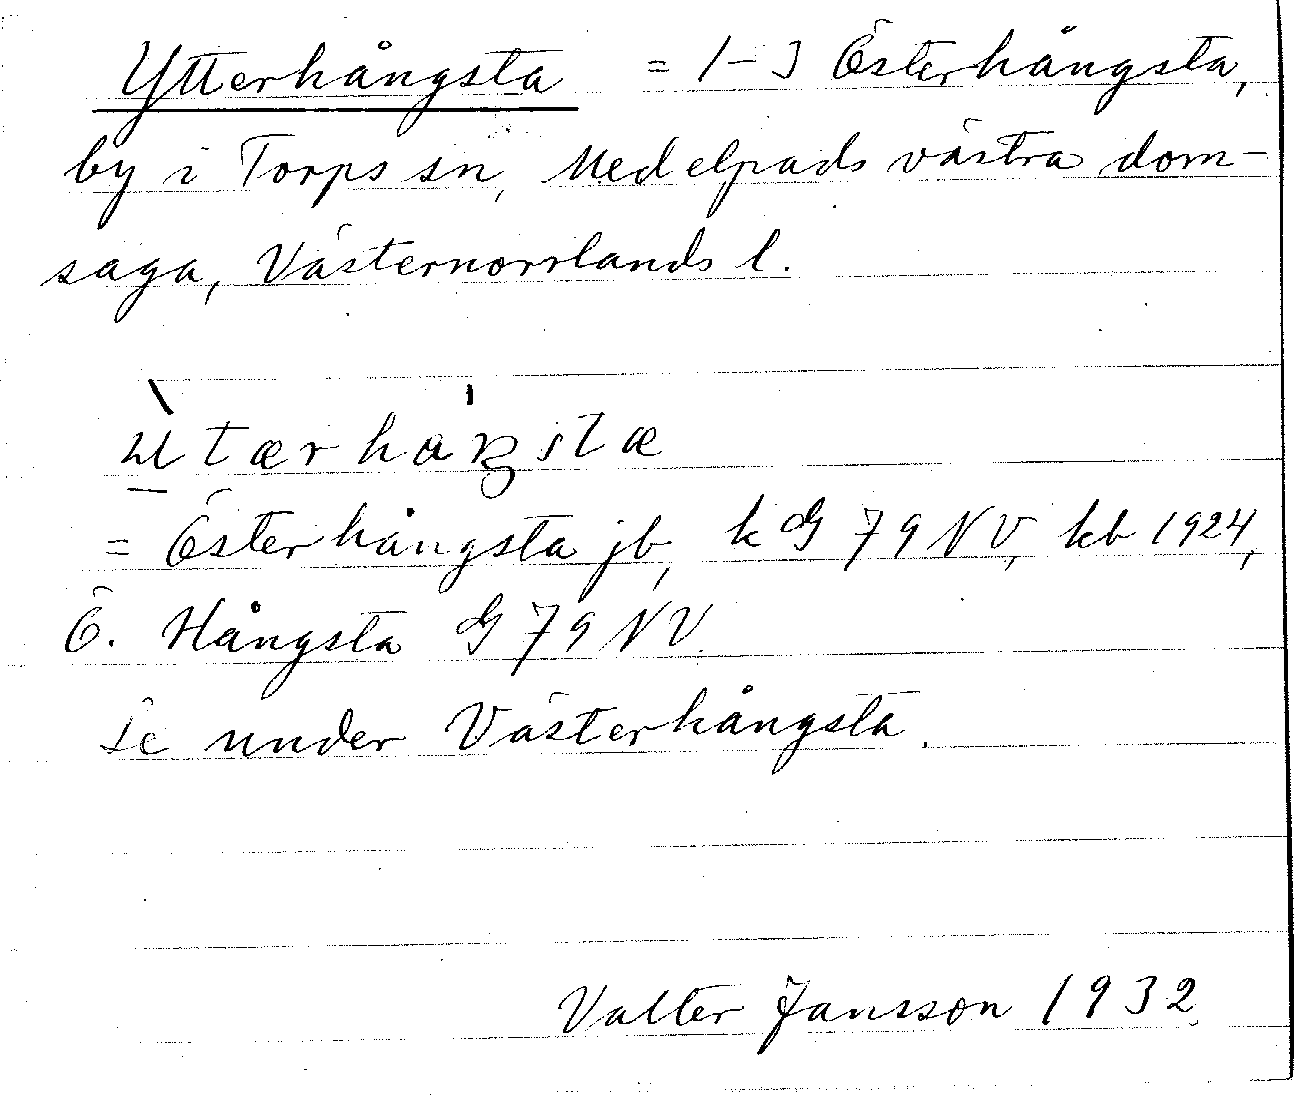 Ytterhångsta = 1-3 Österhångsta,
by i Torps sn, Medelpads västra dom-
saga, Västernorrlands l.
= Österhångsta jb, k G 79 NV, kb 1924,
Ö. Hångsta G 79 NV.
Se under Västerhångsta.
Valter Jansson 1932